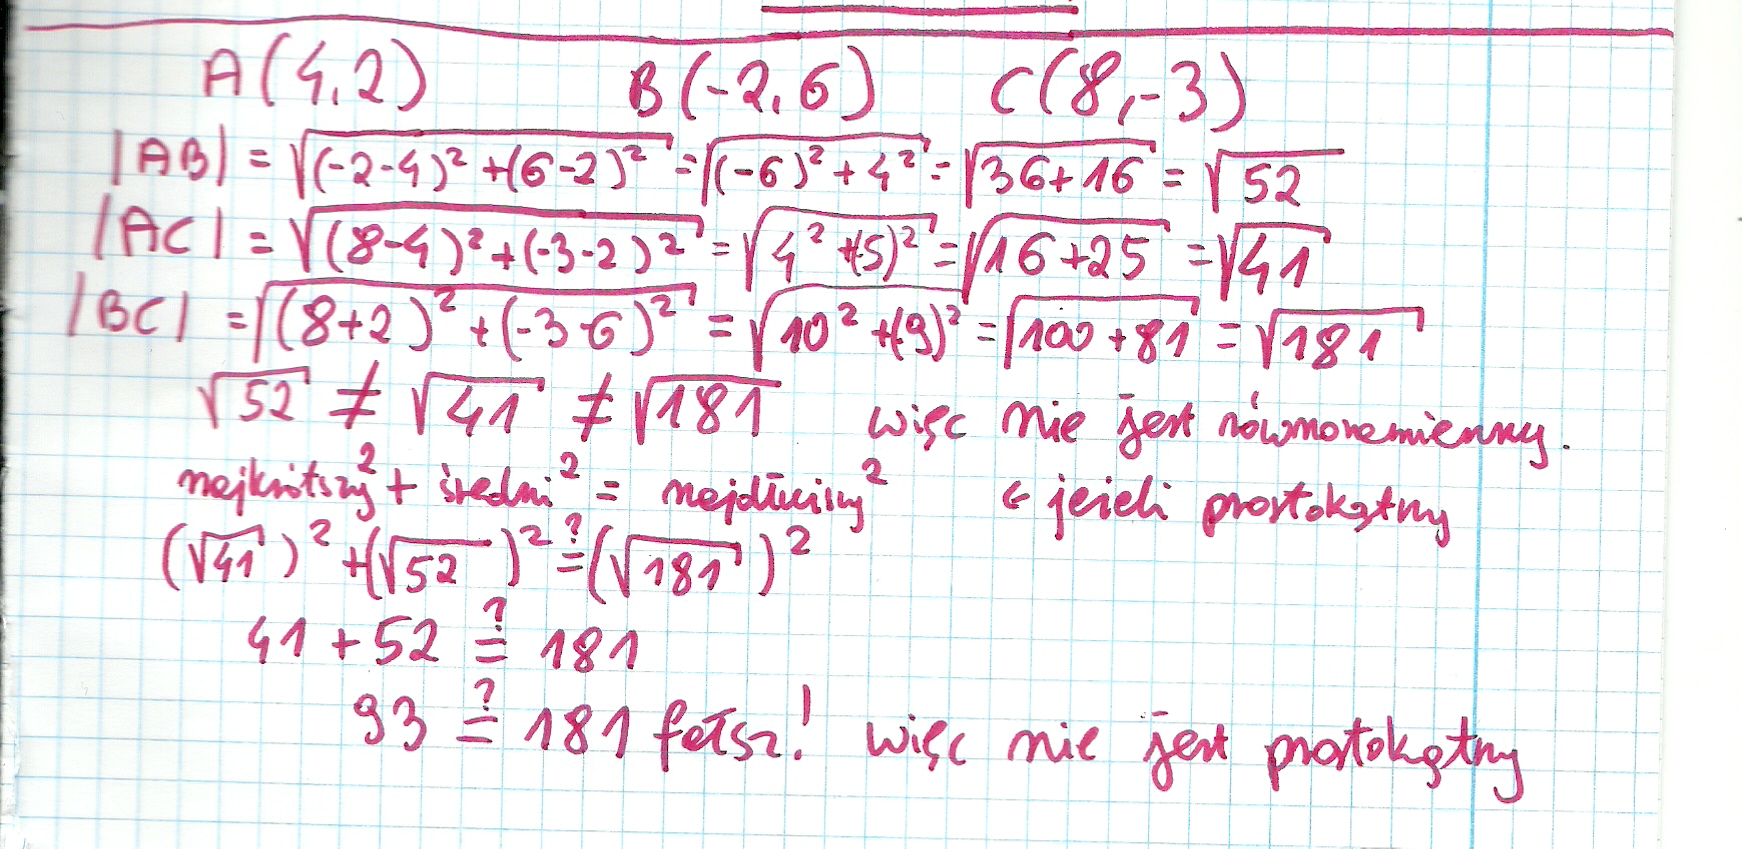 A(4,2) B(-2,6) C(8,-3)
|AB| = √((-2-4)²+(6-2)²) = √((-6)²+4²) = √(36+16) = √52
|AC| = √((8-4)²+(-3-2)²) = √(4²+(-5)²) = √(16+25) = √41
|BC| = √((8+2)²+(-3-6)²) = √(10²+(-9)²) = √(100+81) = √181
√52 ≠ √41 ≠ √181 więc nie jest równoramienny.
najkrótszy² + średni² = najdłuższy² ← jeżeli prostokątny
(√41)² + (√52)² ≟ (√181)²
41 + 52 ≟ 181
93 ≟ 181 fałsz! więc nie jest prostokątny